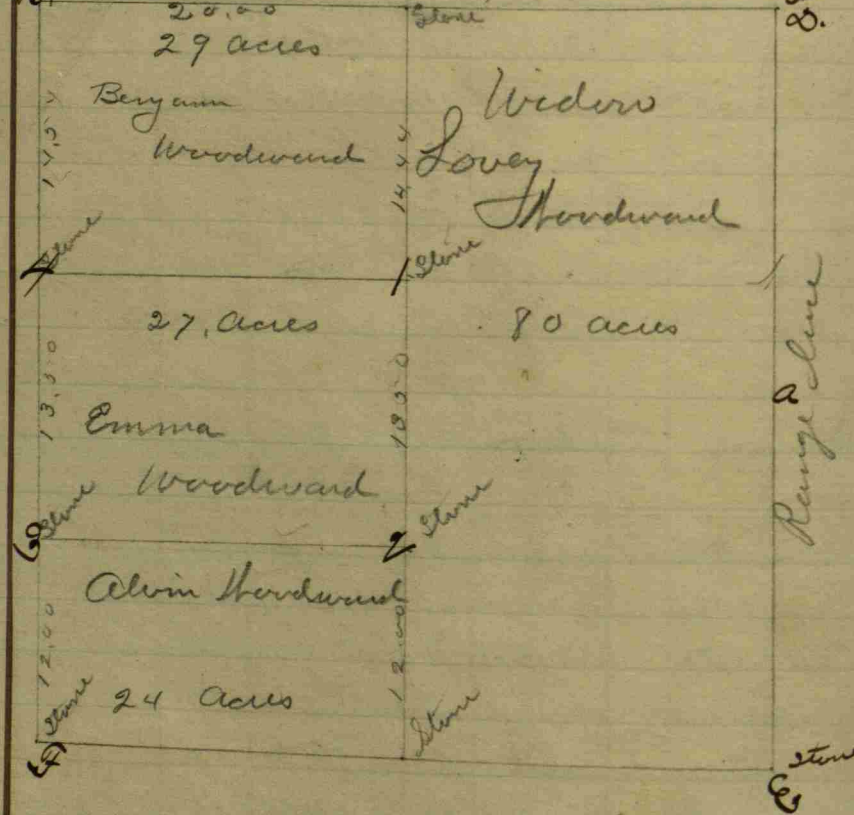 20.00
29 acres
Stone
D.
Benjamin
Woodward
14.44
Widow
Lovey
Woodward
Stone
4
1
Stone
27, acres
80 acres
13.50
Emma
Woodward
a
Range Line
Stone
6
2
Stone
Alvin Woodward
12.00
12.00
24 acres
Stone
Stone
Stone